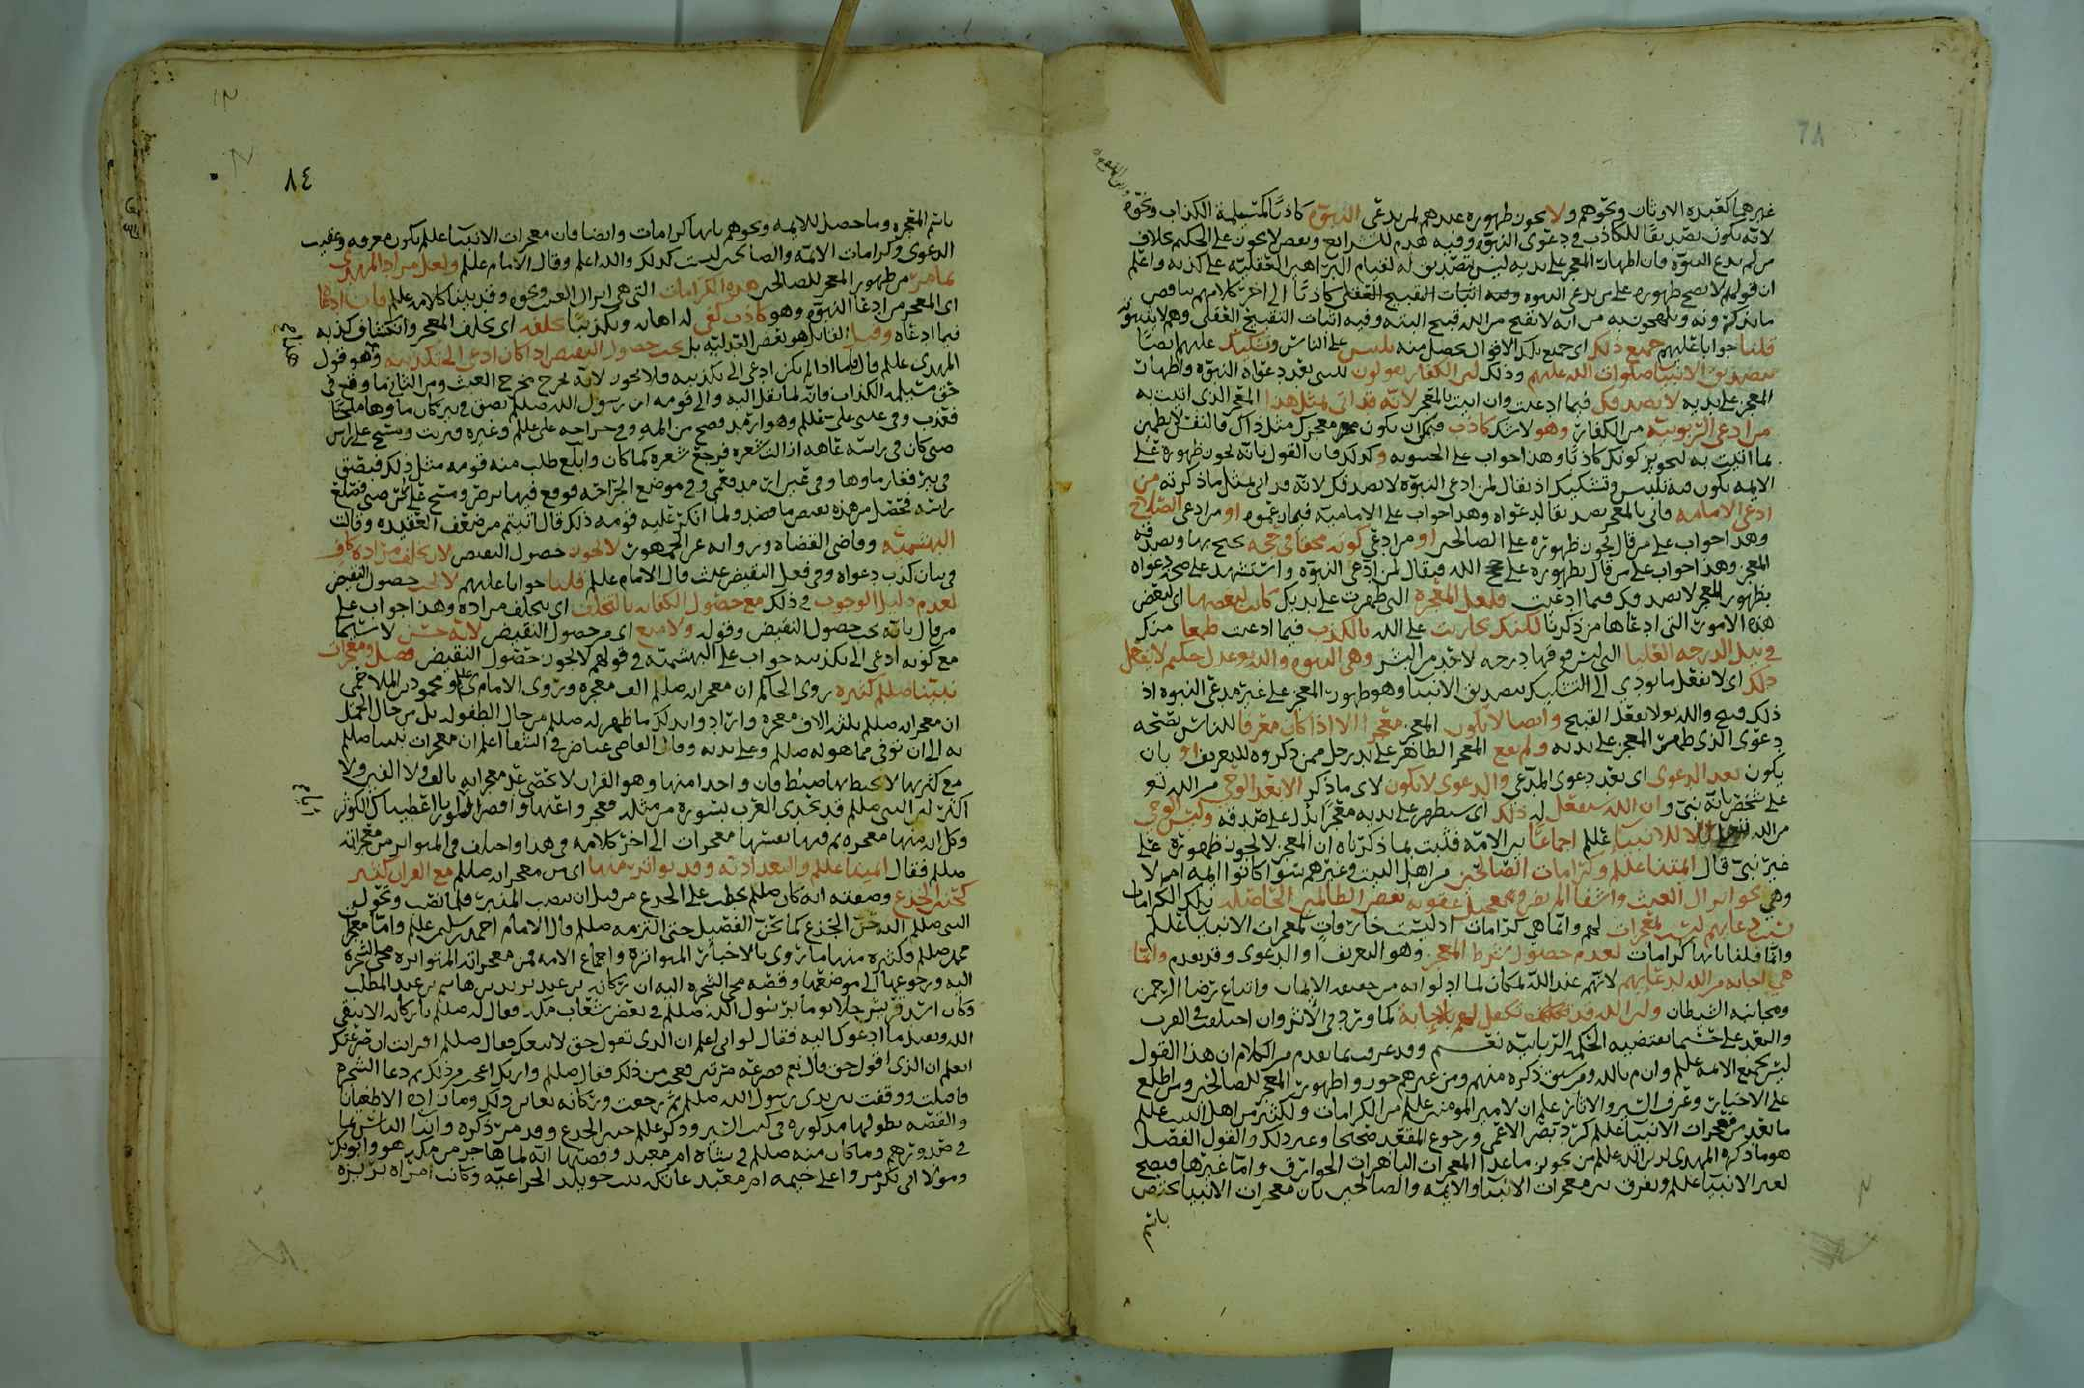 ٦٨
غيرهم كعبدة الاوثان ونحوهم ولا يجوز ظهوره عندهم لمن يدعي النبوة كاذبا كمسيلمة الكذاب ونحوه
لانه يكون تصديقا للكاذب في دعوى النبوة وفيه هدم للشرايع وبعضهم لا يجوز على الحكيم بخلاف
من لم يدع النبوة فان اظهار المعجز على يديه ليس بتصديق له لقيام البراهين العقلية على كذبه واعلم
ان قولهم لا يصح ظهوره على من يدعي النبوة
ما يذكرونه من انه لا يقبح من الله قبيح البته وفيه اثبات التقبيح العقلي وهم لا يثبتونه
قلنا جوابا عليهم جميع ذلك اي جميع تلك الاقوال يحصل منه تلبيس على الناس وتشكيك عليهم
بتصديق الانبيا صلوات الله عليهم وذلك لان الكفار يقولون للنبي بعد دعواه النبوة واظهار
المعجز على يديه لا نصدقك فيما ادعيت وان اتيت بالمعجز لانه قد اتى بمثل هذا المعجز الذي اتيت به
من ادعى الربوبية من الكفار وهو لا شك كاذب فيمكن ان يكون معجزك مثل ذاك فالنفس لا تطمئن
بما اتيت به لتجويز كونك كاذبا وهذا جواب على الحشوية وكذلك فان القول بانه يجوز ظهوره على
الايمه يكون فيه تلبيس وتشكيك اذ يقال لمن ادعى النبوة لا نصدقك لانه قد اتى بمثل ما ذكرته من
ادعى الامامة فاتى بالمعجز تصديقا لدعواه وهذا جواب على الامامية فيما زعموه او من ادعى الصلاح
وهذا جواب على من قال يجوز ظهوره على الصالحين او من ادعى كونه محقا في حجه يحتج بها
المعجز وهذا جواب على من قال بظهوره على حجج الله فيقال لمن ادعى النبوة واستشهد على صحة دعواه
بظهور المعجز لا نصدقك فيما ادعيت فلعل المعجزة التي ظهرت على يديك كانت لبعضها اي لبعض
هذه الامور التي ادعاها من ذكرنا لكنك تجاريت على الله بالكذب فيما ادعيت طمعا منك
في نيل الدرجه العليا التي ليس فوقها درجه لاحد من البشر وهي النبوه والله عدل حكيم لا يفعل
ذلك اي لا يفعل ما يودي الى التشكيك بتصديق الانبيا وهو ظهور المعجز على غير مدعي النبوه اذ
ذلك قبيح والله تعالى لا يفعل القبيح وايضا لا يكون المعجز معجزا الا اذا كان معرفا للناس بصحه
دعوى الذي ظهر المعجز على يديه ولم يقع المعجز الظاهر على يد رجل ممن ذكروه للتعريف او بان
يكون بعد الدعوى اي بعد دعوى المدعي والدعوى لا تكون لاي ما ذكر الا بعد الوحي من الله تع
على شخص بانه نبي وان الله سيفعل له ذلك اي سيظهر على يديه معجزا يدل على صدقه وليس الوحي
من الله الا للانبيا عليلم اجماعا بين الامه فثبت بما ذكرناه ان المعجز لا يجوز ظهوره على
غير نبي قال ائمتنا عليلم وكرامات الصالحين من اهل البيت وغيرهم سوا كانوا ايمه ام لا
وهي نحو انزال الغيث واشفا المريض وتعجيل عقوبه بعض الظالمين الحاصله بتلك الكرامات
بسبب دعايهم ليست بمعجزات لهم وانما هي كرامات اذ ليست خارقات كمعجزات الانبيا عليلم
وانما قلنا بانها كرامات لعدم حصول شرط المعجز وهو التعريف او الدعوى وقد تقدم وانما
هي اجابه من الله لدعايهم لانهم عند الله بمكان لما ادلوا به من حقيقه الايمان واتباع رضا الرحمن
ومجانبه الشيطان ولان الله قد تكفل لهم بالاجابة كما ورد في الاثر وان اختلفت في القرب
والبعد على حسب ما تقتضيه الحكمة الربانية نعم وقد عرف بما تقدم من الكلام ان هذا القول
ليس لجميع الائمه عليلم وان م بالله ومن سبق ذكره منهم ومن غيرهم جوزوا ظهور المعجز للصالحين ومن اطلع
على الاخبار وعرف السير والاثار علم ان لامير المومنين عليلم من الكرامات ولكثير من اهل البيت عليلم
ما يعد من معجزات الانبيا عليلم كرد بصر الاعمى ورجوع المقعد صحيحا وغير ذلك والقول الفصل
هو ما ذكره المهدي لدين الله عليلم من تجويز ما عدا المعجزات الباهرات الخوارق واما غيرها فيصح
لغير الانبيا عليلم ونفرق بين معجزات الانبيا والائمه والصالحين بان معجزات الانبيا تختص
٨٤
باسم المعجزه وما حصل للايمه ونحوهم بانها كرامات وايضا فان معجزات الانبيا عليلم تكون معروفه وعقيب
الدعوى وكرامات الائمه والصالحين ليست كذلك والله اعلم وقال الامام عليلم ولعل مراد المهدي
بما ضر من ظهور المعجز للصالحين هذه الكرامات التي هي انزال الغيث ونحوه وقد بينا كلامه عليلم فان ادعا
اي المعجز من ادعا النبوه وهو كاذب كفى له اهانه وتكذيبا تخلفه اي تخلف المعجز وانكشاف كذبه
فيما ادعاه وقيل القايل هو بعض الزيديه بل يجب حصول النقيض اذا كان ادعى الى تكذيبه وهو قول
المهدي عليلم قال فاما اذا لم يكن ادعى الى تكذيبه فلا يجوز لانه يخرج مخرج العبث ومن الثاني ما وقع في
حق مسيلمه الكذاب فانه لما نقل اليه والى قومه ان رسول الله صللم بصق في بير كان ماوها ملحا
فعذب وفي عيني علي عليلم وهو ارمد فصح من المه وفي جراحه على عليلم وغيره فبريت ومسح على راس
صبي كان في راسه عاهه ازالت شعره فرجع شعره كما كان وابلغ طلب منه قومه مثل ذلك فبصق
في بير فغار ماوها وفي عين ارمد فعمي وفي موضع الجراحه فوقع فيها برص ومسح على راس صبي فصلع
راسه فحصل من هذه نقيض ما قصد ولما انكر عليه قومه ذلك قال انما اتيتم من ضعف العقيده وقالت
البهشميه وقاضي القضاة ورواته عن الجمهور لا يجوز حصول النقيض لان تخلف مراده كاف
في بيان كذب دعواه وفي فعل النقيض عبث قال الامام عليلم قلنا جوابا عليهم لا يجب حصول النقيض
لعدم دليل الوجوب في ذلك مع حصول الكفايه بالتخلف اي بتخلف مراده وهذا جواب على
من قال بانه يجب حصول النقيض وقوله ولا منع اي من حصول النقيض لانه حسن لا سيما
مع كونه ادعى الى تكذيبه جواب على البهشميه في قولهم لا يجوز حصول النقيض فصل ومعجزات
نبينا صللم كثيره روى الحاكم ان معجزاته صللم الف معجزه وروى الامام ي عليلم ومحمود بن الملاحمي
ان معجزاته صللم ثلثه الاف معجزه واراد وابذلك ما ظهر له صللم من حال الطفوله بل من حال الحمل
به الى ان توفي مما هو له صللم وعلى يديه وقال القاضي عياض في الشفا اعلم ان معجزات نبينا صللم
مع كثرتها لا يحيط بها ضبط فان واحدا منها وهو القران لا تحصى عدد معجزاته بالف ولا الفين ولا
اكثر لان النبي صللم قد تحدى العرب بسورة من مثله فعجزوا عنها واقصر السور انا اعطيناك الكوثر
وكل ايه منها معجزه ثم فيها نفسها معجزات الى اخر كلامه في هذا واختلف في المتواتر من معجزاته
صللم فقال ائمتنا عليلم والبغداديه وقد تواتر منها اي من معجزاته صللم مع القران كثير
كحنين الجذع وصفته انه كان صللم يخطب على الجذع من قبل ان ينصب المنبر فلما نصب وتحول
النبي صللم اليه حن الجذع كما تحن الفصيل حتى التزمه صللم قال الامام احمد بن سليمن عليلم واما معجزات
محمد صللم فكثيره منها ما روى بالاخبار المتواتره واجماع الامه فمن معجزاته المتواتره مجي الشجره
اليه ورجوعها الى موضعها وقصه مجي الشجره اليه ان ركانه بن عبد يزيد بن هاشم بن عبد المطلب
وكان اشد قريش خلا يوما برسول الله صللم في بعض شعاب مكه فقال له صللم يا ركانه الا تتقي
الله وتقبل ما ادعوك اليه فقال لو اني اعلم ان الذي تقول حق لاتبعتك فقال صللم افرايت ان صرعتك
اتعلم ان الذي اقول حق قال نعم فصرعه مرتين فعجب من ذلك فقال صللم واريك اعجب من ذلك ثم دعا الشجره
فاقبلت ووقفت بين يدي رسول الله صللم ثم رجعت وركانه يعاين ذلك وما زاده الا طغيانا
والقصه بطولها مذكوره في كتب السير وذكر عليلم حنين الجذع وقد مر ذكره وانبا الناس بما
في صدورهم وما كان منه صللم في شاه ام معبد وقصتها انه لما هاجر من مكه هو وابو بكر
ومولا ابي بكر مروا على خيمه ام معبد عاتكه بنت خويلد الخزاعيه وكانت امراه برزه